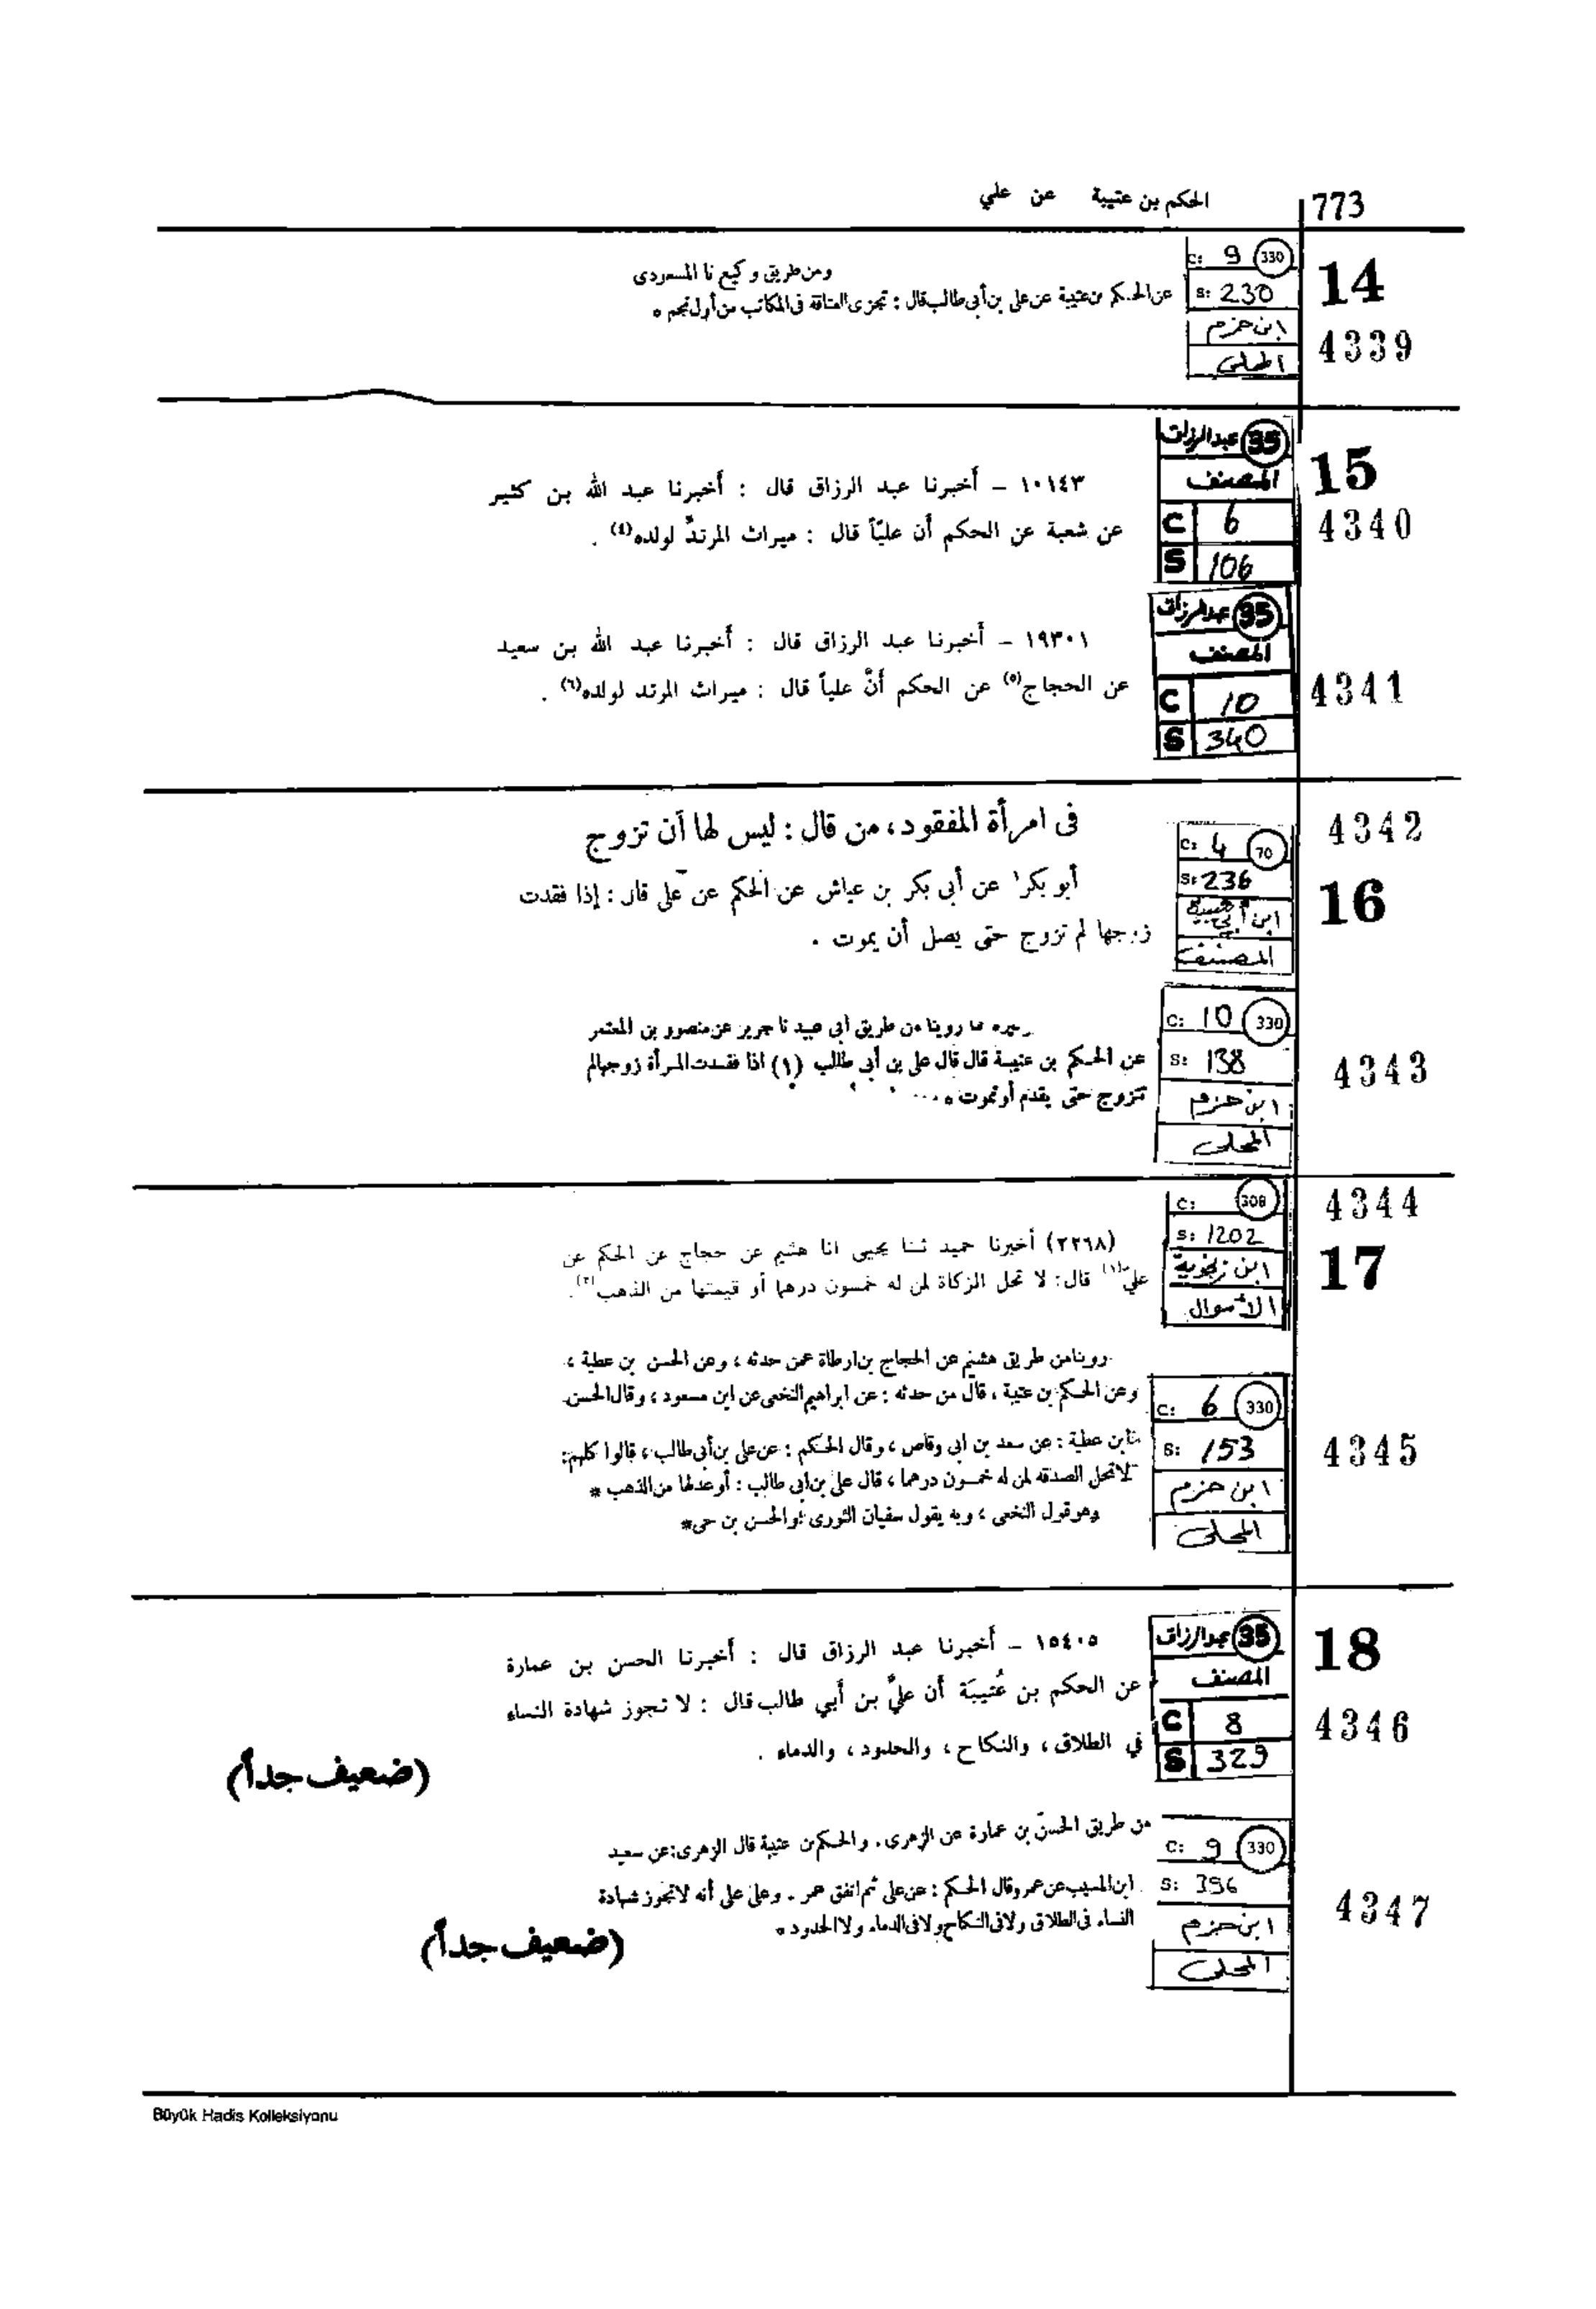 773
الحكم بن عتيبة عن علي
14
4339
C: 9 330
S: 230
ابن حزم
المحلى
ومن طريق وكيع نا المسعودى
عن الحكم بن عتيبة عن على بن أبى طالب قال : تجزى العتاقة فى المكاتب من أول نجم *
15
4340
عبدالرزاق 35
المصنف
C 6
S 106
١٠١٤٣ – أخبرنا عبد الرزاق قال : أخبرنا عبد الله بن كثير
عن شعبة عن الحكم أن عليّاً قال : ميراث المرتدِّ لولده(٤) .
4341
عبدالرزاق 35
المصنف
C 10
S 340
١٩٣٠١ – أخبرنا عبد الرزاق قال : أخبرنا عبد الله بن سعيد
عن الحجاج(٥) عن الحكم أنَّ علياً قال : ميراث المرتد لولده(٦) .
4342
16
C: 4 70
S: 236
ابن أبي شيبة
المصنف
فى امرأة المفقود، من قال : ليس لها أن تزوج
أبو بكر عن أبى بكر بن عياش عن الحكم عن على قال : إذا فقدت
زوجها لم تزوج حتى يصل أن يموت .
4343
C: 10 330
S: 138
ابن حزم
المحلى
ما روينا من طريق أبى عبيد نا جرير عن منصور بن المعتمر
عن الحكم بن عتيبة قال قال على بن أبى طالب (١) اذا فقدت المرأة زوجها لم
تتزوج حتى يقدم أو تموت * ...
4344
17
C: 308
S: 1202
ابن زنجوية
الأموال
(٢٢٦٨) أخبرنا حميد ثنا يحيى انا هشيم عن حجاج عن الحكم عن
علي(١) قال: لا تحل الزكاة لمن له خمسون درهما أو قيمتها من الذهب(٢).
4345
C: 6 330
S: 153
ابن حزم
المحلى
روينا من طريق هشيم عن الحجاج بن ارطاة عمن حدثه ، وعن الحسن بن عطية ،
وعن الحكم بن عتيبة ، قال من حدثه : عن ابراهيم النخعى عن ابن مسعود ، وقال الحسن
ابن عطية : عن سعد بن ابى وقاص ، وقال الحكم : عن على بن أبى طالب ، قالوا كلهم:
لا تحل الصدقة لمن له خمسون درهما ، قال على بن ابى طالب : أو عدلها من الذهب *
وهو قول النخعى ، وبه يقول سفيان الثورى ، والحسن بن حى *
18
4346
عبدالرزاق 35
المصنف
C 8
S 329
١٥٤٠٥ – أخبرنا عبد الرزاق قال : أخبرنا الحسن بن عمارة
عن الحكم بن عُتيبَة أن عليَّ بن أبي طالب قال : لا تجوز شهادة النساء
في الطلاق ، والنكاح ، والحدود ، والدماء .
(ضعيف جداً)
4347
C: 9 330
S: 396
ابن حزم
المحلى
من طريق الحسن بن عمارة عن الزهرى . والحكم بن عتيبة قال الزهرى: عن سعيد
ابن المسيب عن عمر وقال الحكم : عن على ثم اتفق عمر . وعلى على أنه لا تجوز شهادة
النساء فى الطلاق ولا فى النكاح ولا فى الدماء ولا الحدود *
(ضعيف جداً)
Büyük Hadis Kolleksiyonu